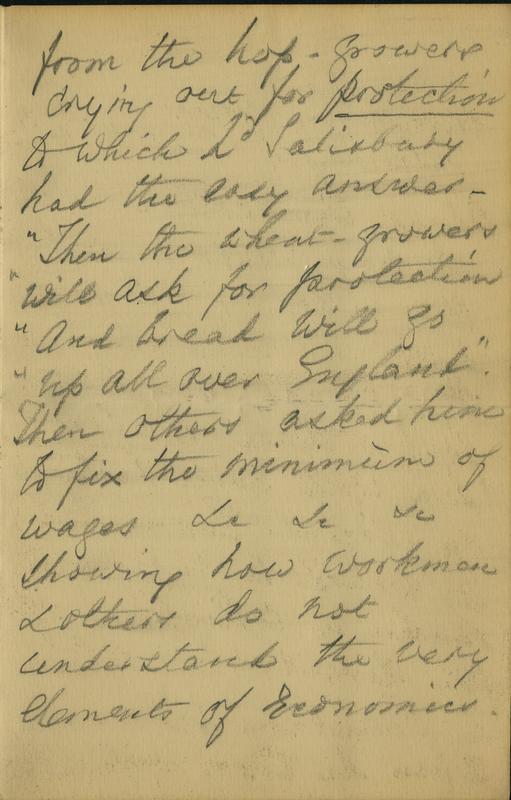 from the hop-growers
crying out for protection
to which Ld Salisbury
had the easy answer -
"Then the wheat-growers
"will ask for protection
"And bread will go
"up all over England".
Then others asked him
to fix the minimum of
wages &c &c &c
showing how workmen
& others do not
understand the very
elements of Economics.